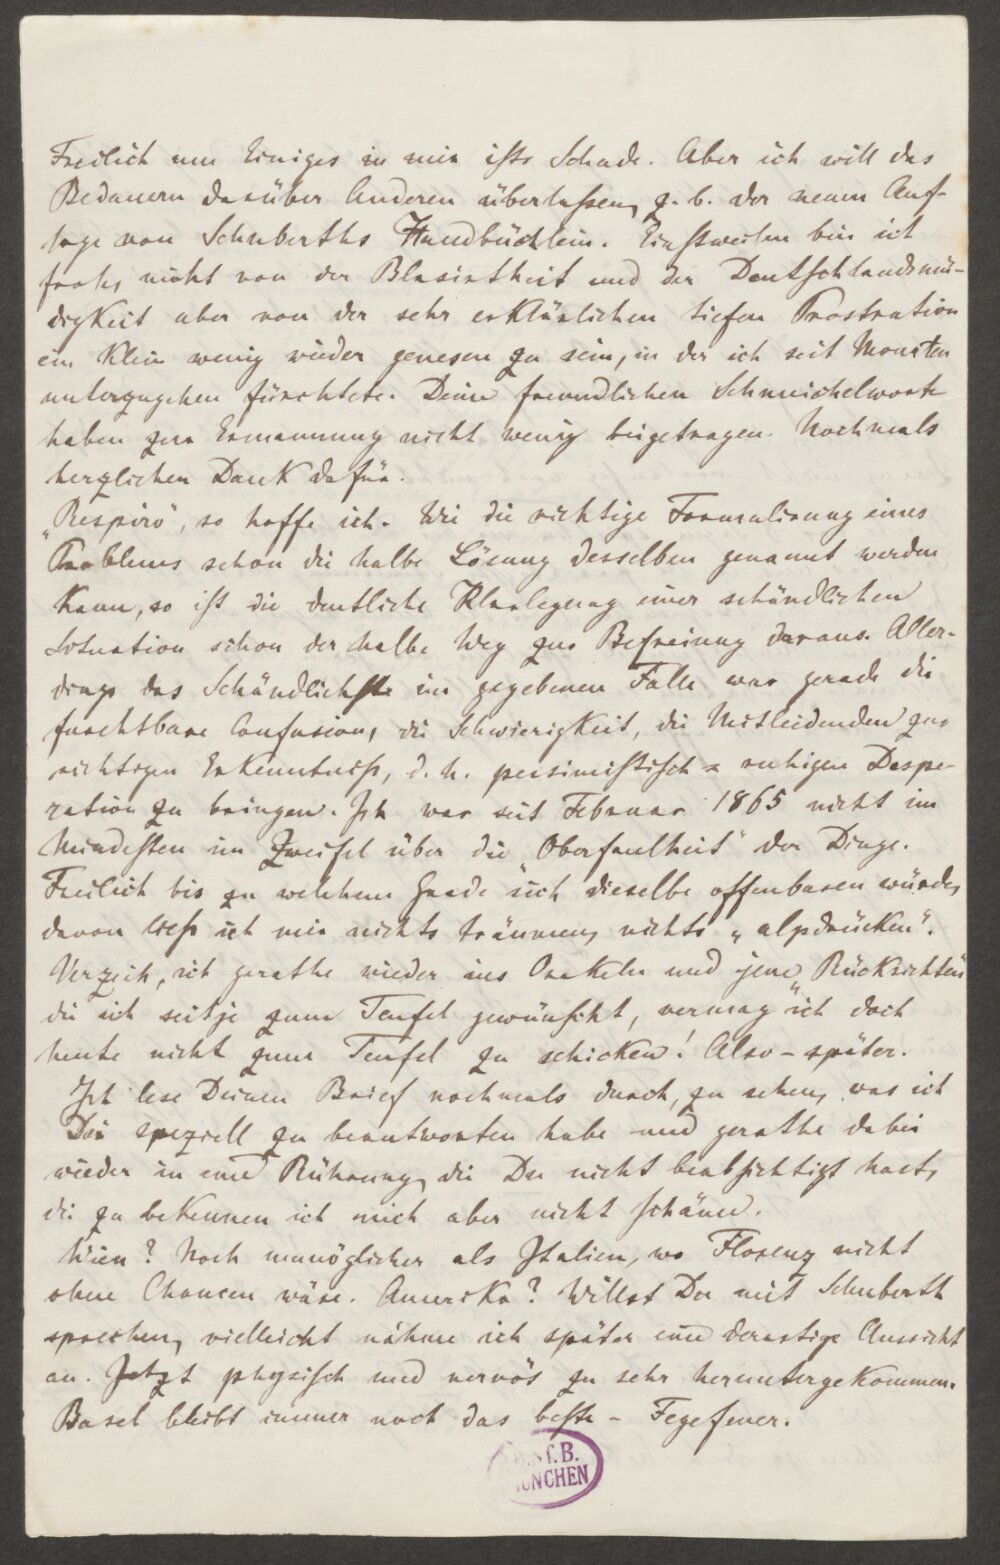 Freilich um Einiges in mir ists Schade. Aber ich will das
Bedauern darüber Anderen überlassen, z. b. der neuen Auf-
lage von Schuberths Handbüchlein. Einstweilen bin ich
froh, nicht von der Blasirtheit und der Deutschlandsmü-
digkeit aber von der sehr erklärlichen tiefen Prostration
ein klein wenig wieder genesen zu sein, in der ich seit Monaten
unterzugehen fürchtete. Deine freundlichen Schmeichelworte
haben zur Ermannung nicht wenig beigetragen. Nochmals
herzlichen Dank dafür.
„Respiro", so hoffe ich. Wie die richtige Formulirung eines
Problems schon die halbe Lösung desselben genannt werden
kann, so ist die deutliche Klarlegung einer schändlichen
Situation schon der halbe Weg zur Befreiung daraus. Aller-
dings das Schändlichste im gegebenen Falle war gerade die
furchtbare Confusion, die Schwierigkeit, die Mitleidenden zur
richtigen Erkenntniss, d. h. pessimistisch-ruhigen Despe-
ration zu bringen. Ich war seit Februar 1865 nicht im
Mindesten im Zweifel über die „Oberfaulheit" der Dinge.
Freilich bis zu welchem Grade sich dieselbe offenbaren würde,
davon liess ich mir nichts träumen, nichts „alpdrücken".
Verzeih, ich gerathe wieder ins Orakeln und jene „Rücksichten"
die ich seitje zum Teufel gewünscht, vermag ich doch
heute nicht zum Teufel zu schicken! Also – später.
Ich lese Deinen Brief nochmals durch, zu sehen, was ich
Dir speziell zu beantworten habe und gerathe dabei
wieder in eine Rührung, die Du nicht beabsichtigt hast,
die zu bekennen ich mich aber nicht schäme.
Wien? Noch unmöglicher als Italien, wo Florenz nicht
ohne Chancen wäre. Amerika? Willst Du mit Schuberth
sprechen, vielleicht nähme ich später eine derartige Aussicht
an. Jetzt physisch und nervös zu sehr heruntergekommen.
Basel bleibt immer noch das beste – Fegefeuer.
B.
MÜNCHEN